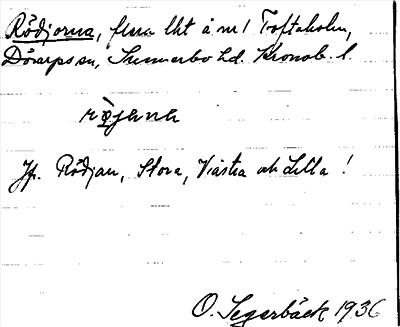 Rödjorna, flera lht å nr 1 Toftaholm,
Dörarps sn, Sunnerbo hd. Kronob. l.
röjana
Jfr. Rödjan, Stora, Västra och Lilla !
O. Segerbäck 1936